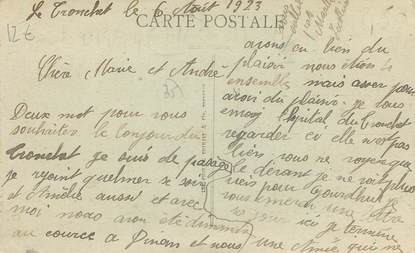 Le Tronchet le 6 Août 1923
12€
CARTE POSTALE
35
Chère Marie et André
Deux mot pour vous
souhaiter le bonjour du
Tronchet je suis de passage
je rejoint quelmer ce soir
et Amélie aussi et avec
moi nous avon été dimanch
au cource a Dinan et nous
avons eu bien du
plaisir nous étion
ensemble mais assez pour
avoir du plaisir je vous
envoi l'hopital du Tronchet
regarder ci elle n'est pas
bien vous ne voyez que
le devant je ne voit plus
rien pour aujourdhui je
vous enverai une lettre
ici je termine
une Amie qui ne